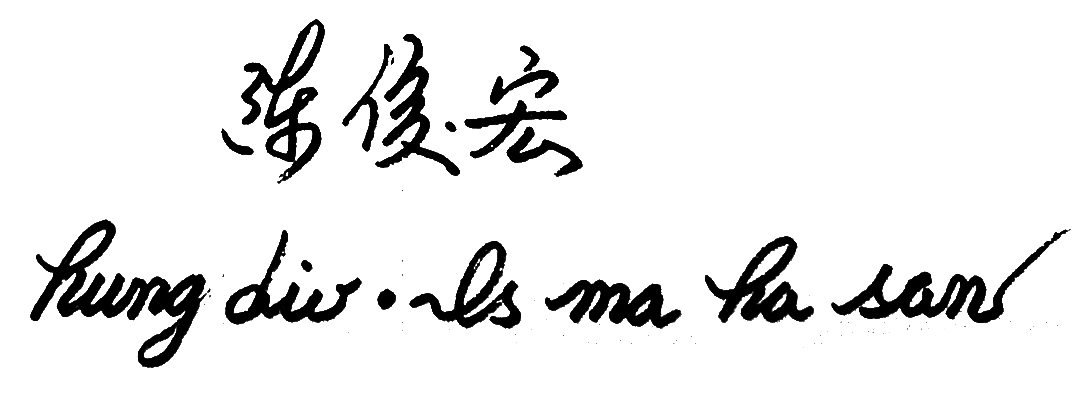 陳俊宏
hung div·Is ma ha san